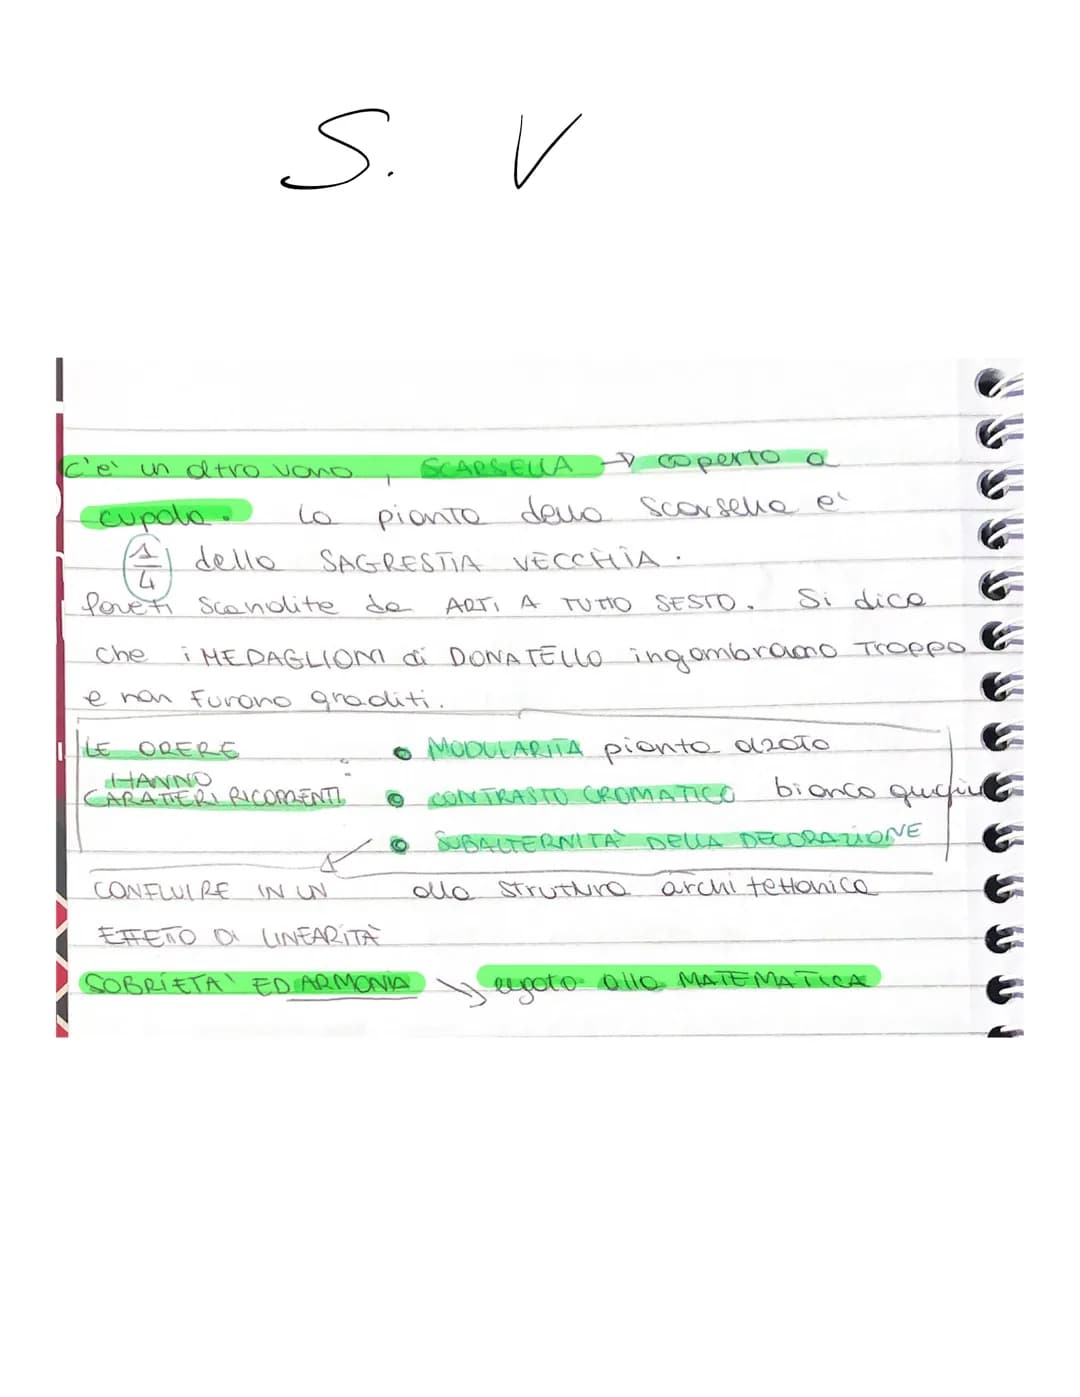 S. V
C'e' un altro vano, SCARSELLA → coperto a
cupola. La pianta della Scarsella e'
1/4 della SAGRESTIA VECCHIA.
Pareti Scandite da ARTI A TUTTO SESTO. Si dice
che i MEDAGLIONI di DONATELLO ingombrano Troppo
e non furono graditi.
LE OPERE HANNO CARATTERI RICORRENTI :
• MODULARITÀ pianta alzato
• CONTRASTO CROMATICO bianco grigio
• SUBALTERNITÀ DELLA DECORAZIONE
alla struttura architettonica
CONFLUIRE IN UN
EFFETTO DI LINEARITÀ
SOBRIETA' ED ARMONIA → legato alla MATEMATICA